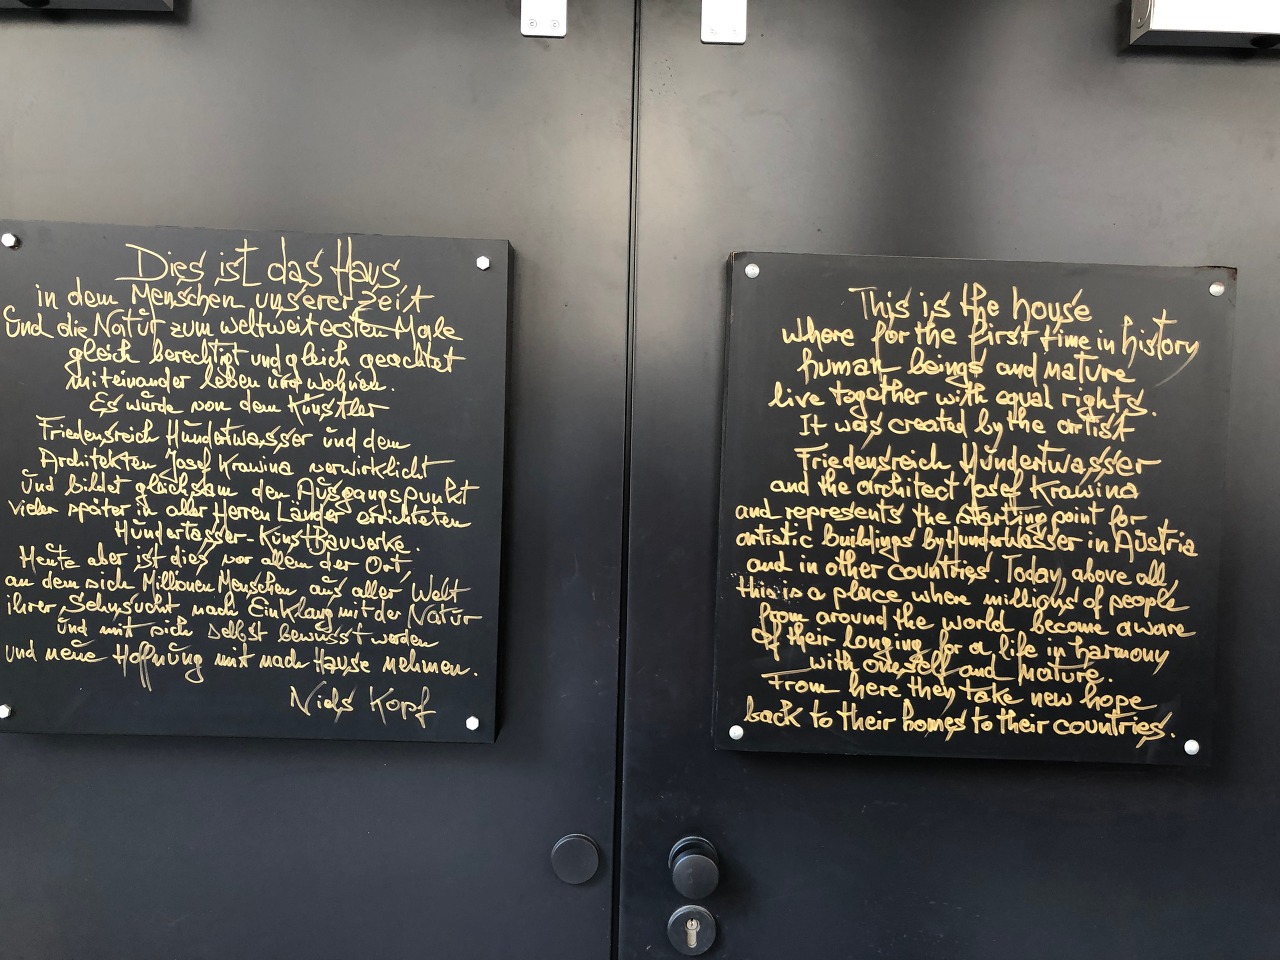 Dies ist das Haus,
in dem Menschen unserer Zeit
und die Natur zum weltweit ersten Male
gleich berechtigt und gleich geachtet
miteinander leben und wohnen.
Es wurde von dem Künstler
Friedensreich Hundertwasser und dem
Architekten Josef Krawina verwirklicht
und bildet gleichsam den Ausgangspunkt
vieler später in aller Herren Länder errichteten
Hundertasser-KunstBauwerke.
Heute aber ist dies vor allem der Ort,
an dem sich Millionen Menschen aus aller Welt
ihrer Sehnsucht nach Einklang mit der Natur
und mit sich selbst bewusst werden
und neue Hoffnung mit nach Hause nehmen.
Niels Kopf
This is the house
where for the first time in history
human beings and nature
live together with equal rights.
It was created by the artist
Friedensreich Hundertwasser
and the architect Josef Krawina
and represents the starting point for
artistic buildings by Hundertwasser in Austria
and in other countries. Today, above all,
this is a place where millions of people
from around the world become aware
of their longing for a life in harmony
with oneself and nature.
From here they take new hope
back to their homes to their countries.